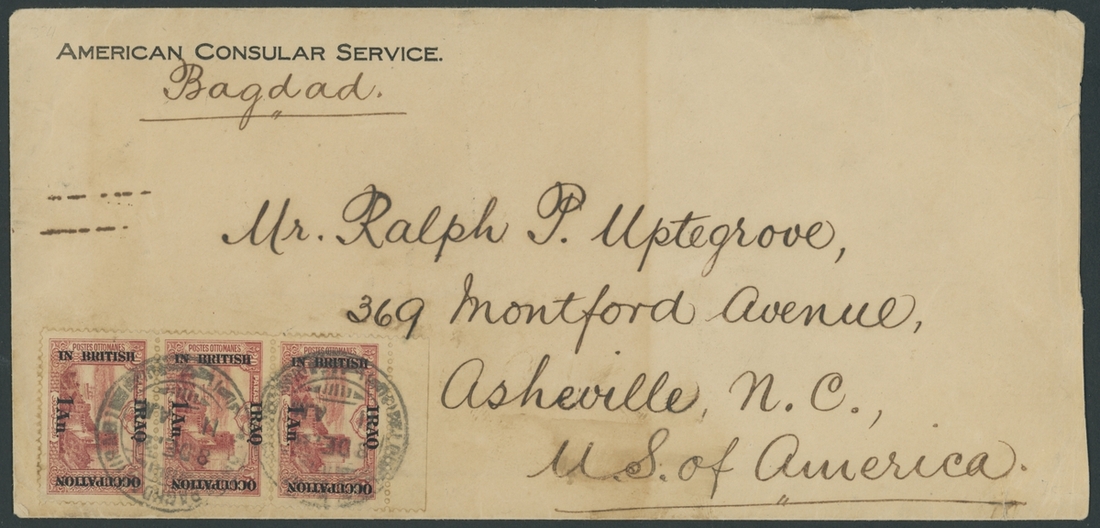 AMERICAN CONSULAR SERVICE.
Bagdad.
Mr. Ralph P. Uptegrove,
369 Montford Avenue,
Asheville, N.C.,
U.S. of America.
POSTES OTTOMANES
IN BRITISH
IRAQ
1 An
OCCUPATION
POSTES OTTOMANES
IN BRITISH
IRAQ
1 An
OCCUPATION
POSTES OTTOMANES
IN BRITISH
IRAQ
1 An
OCCUPATION
8 DE